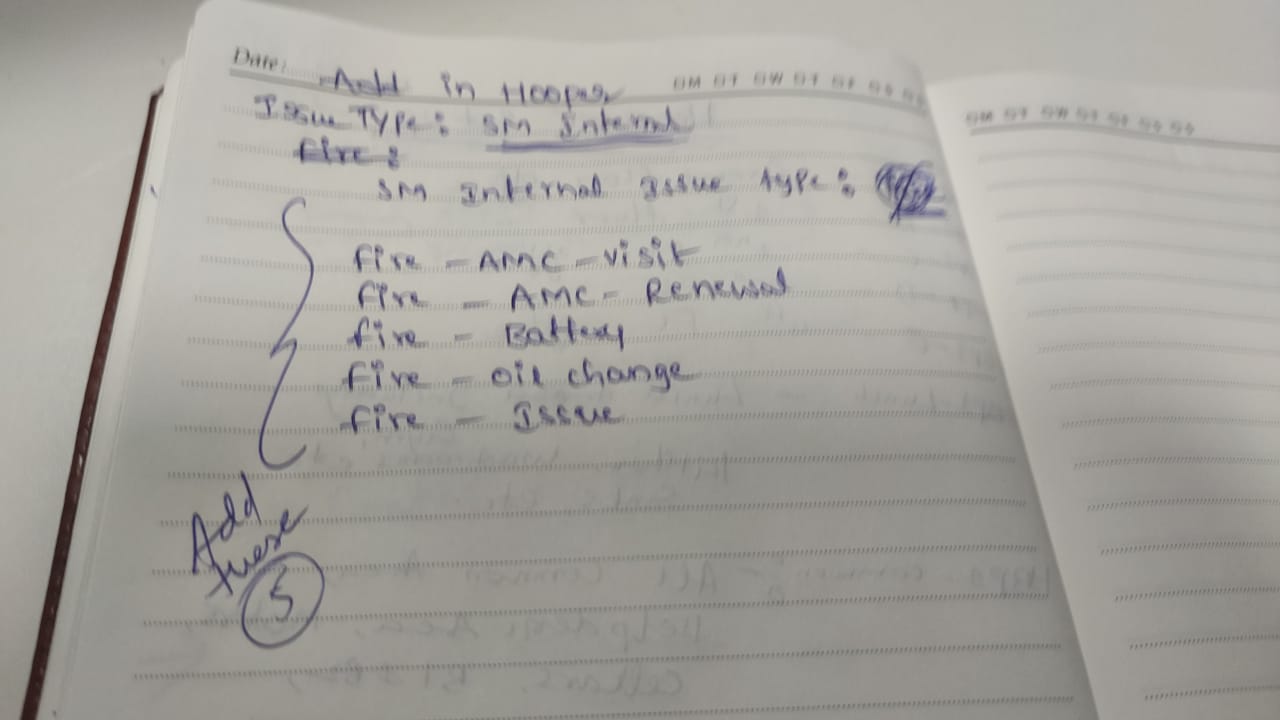 Date:
Add in Hooper
Issue TYPe: SM Internal
Fire:
SM Internal Issue type:
fire - AMC - visit
fire - AMC - Renewal
fire - Battery
fire - oil change
fire - Issue
Add
these
5